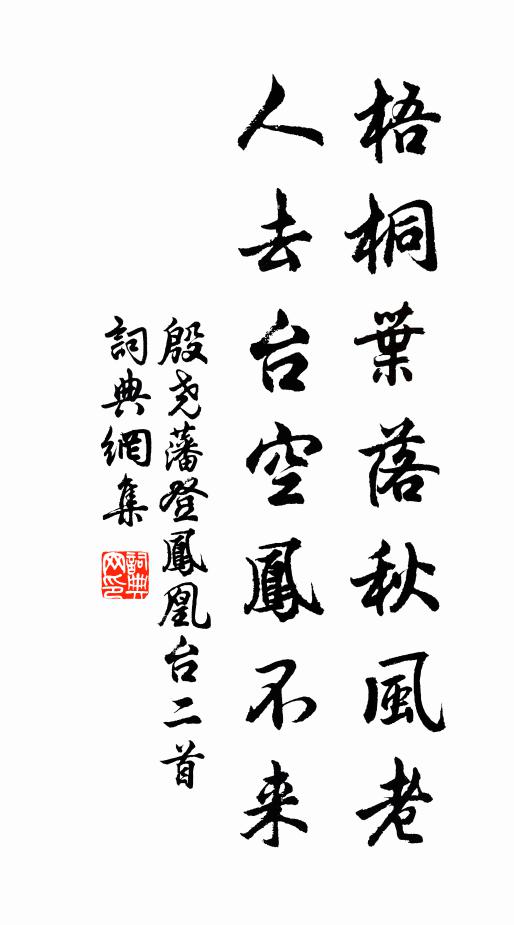 梧桐葉落秋風老
人去台空鳳不来
殷尧藩登鳳凰台二首
詞典網集
詞典網印